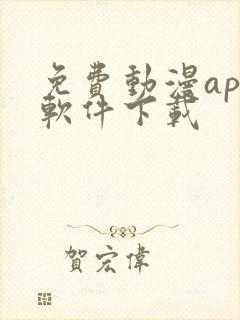 免費動漫ap
軟件下載
賀宏偉